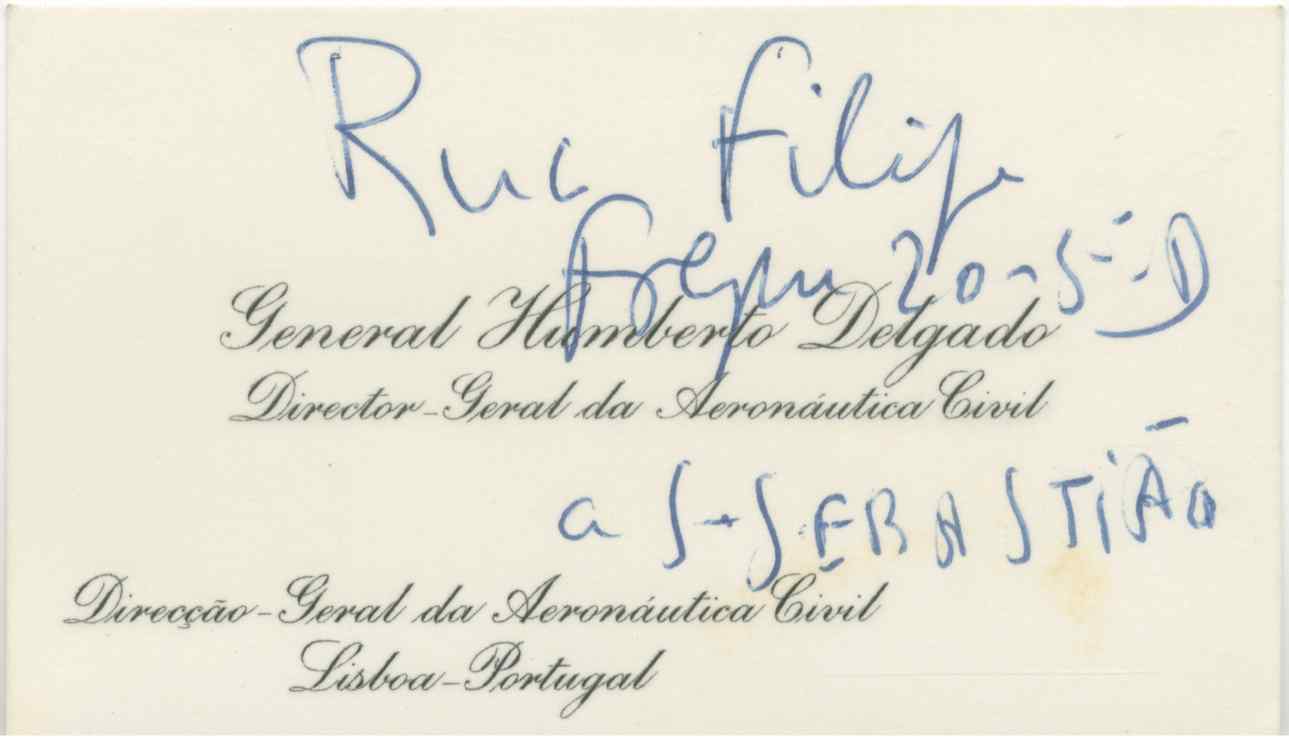 Rua Filipe
Folque 20-5º-D
General Humberto Delgado
Director-Geral da Aeronáutica Civil
a S. SEBASTIÃO
Direcção-Geral da Aeronáutica Civil
Lisboa-Portugal